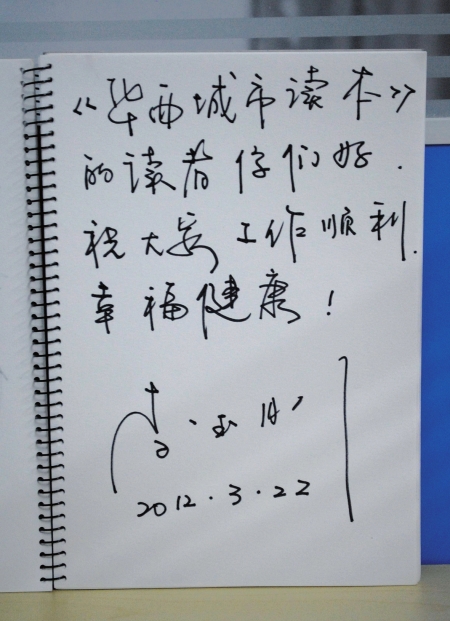 《华西城市读本》
的读者你们好.
祝大家工作顺利.
幸福健康!
李玉刚
2012.3.22